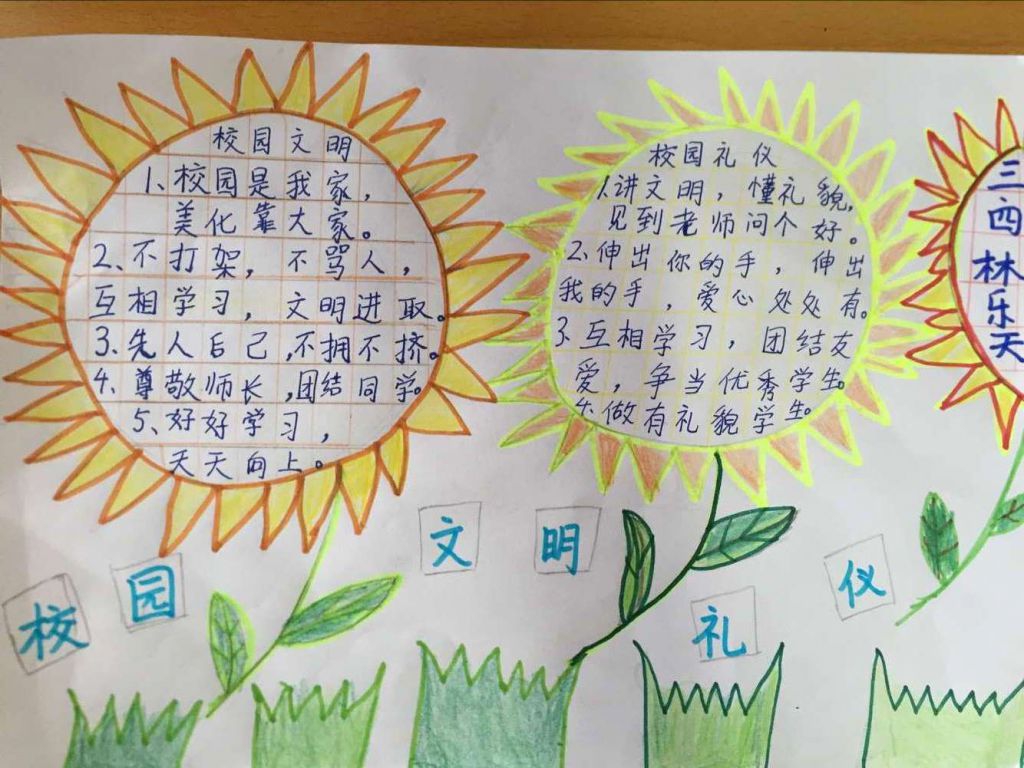 校园文明
1、校园是我家，
美化靠大家。
2、不打架，不骂人，
互相学习，文明进取。
3、先人后己，不拥不挤。
4、尊敬师长，团结同学。
5、好好学习，
天天向上。
校园礼仪
1.讲文明，懂礼貌，
见到老师问个好。
2.伸出你的手，伸出
我的手，爱心处处有。
3.互相学习，团结友
爱，争当优秀学生。
4.做有礼貌学生。
三
四
林
乐
天
校园文明礼仪